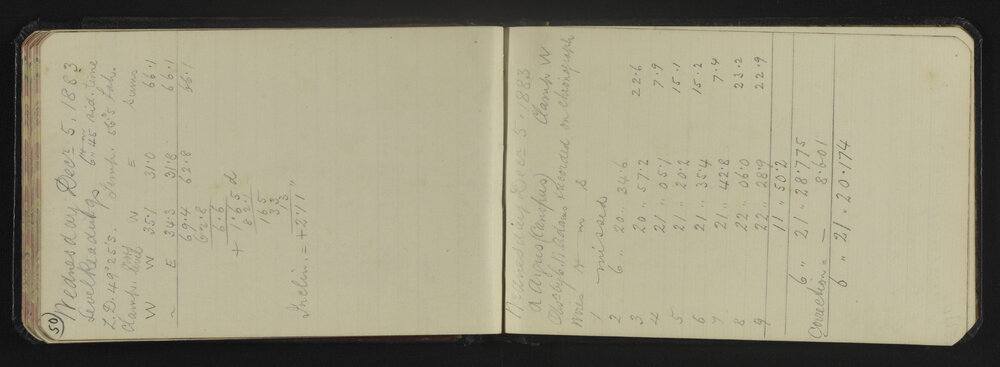 50 Wednesday Decr 5, 1883
Level Readings 6h 45m sid. time
Z.D. 49° 25'5. Temp. 56°5 Fah.
Clamp. level W E Sums
W 35.1 31.0 66.1
E 34.3 31.8 66.1
69.4 62.8 66.1
62.8
6.6
+ 1.65 d
165
33
Inclin. = +2.11"
Wednesday Decr 5. 1883
α Argus (Canopus) Clamp W
Obs by Adams recorded on chronograph
Wires h m s
1 missed
2 6 " 20 .. 34.6
3 20 .. 57.2 22.6
4 21 .. 05.1 7.9
5 21 .. 20.2 15.1
6 21 .. 35.4 15.2
7 21 .. 42.8 7.4
8 22 .. 06.0 23.2
9 22 .. 28.9 22.9
11 50.2
6 " 21 .. 28.775
Correction = — 8.601
6 " 21 .. 20.174